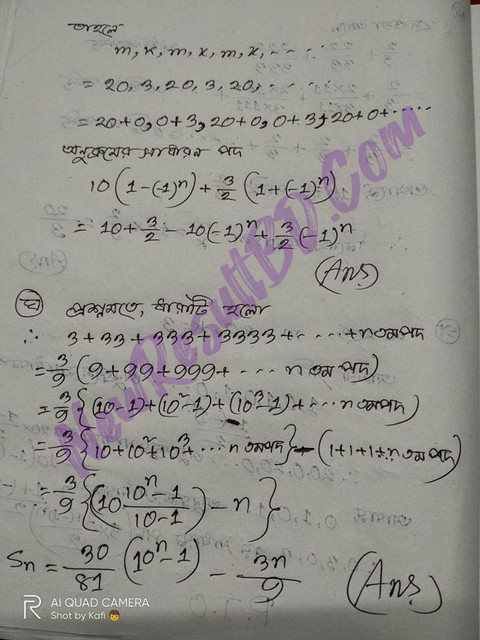 তাহলে
m, x, m, x, m, x, - - - -
= 20, 3, 20, 3, 20, - - - -
= 20+0, 0+3, 20+0, 0+3, 20+0+ - - - -
অনুক্রমের সাধারন পদ
10(1-(-1)ⁿ) + 3/2 (1+(-1)ⁿ)
= 10 + 3/2 - 10(-1)ⁿ + 3/2 (-1)ⁿ
(Ans)
ঘ প্রশ্নমতে, ধারাটি হলো
∴ 3+33+333+3333+ - - - - + n তম পদ
= 3/9 (9+99+999+ - - - n তম পদ)
= 3/9 {(10-1)+(10²-1)+(10³-1)+ - - - n তম পদ}
= 3/9 {10+10²+10³+ - - - n তম পদ} - (1+1+1+ n তম পদ)
= 3/9 {(10 (10ⁿ-1)/(10-1)) - n}
Sn = 30/81 (10ⁿ-1) - 3n/9 (Ans)
NewResultBD.Com
AI QUAD CAMERA
Shot by Kafi 👦